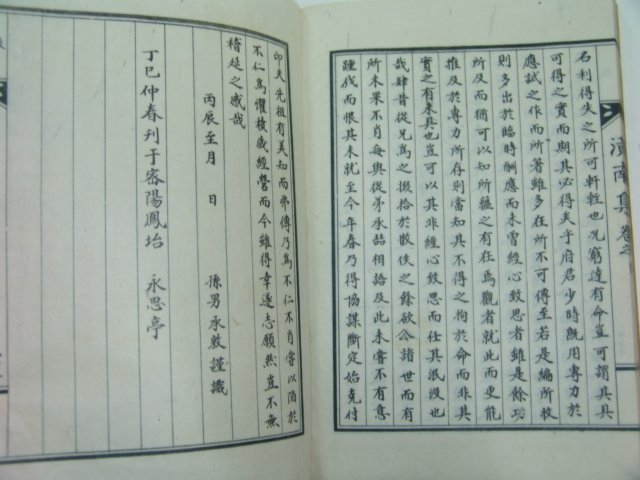 名利得失之所可軒輊也況窮達有命豈可謂其具
可得之實而期其必得矣乎府君少時旣用專力於
應試之作而所著雖多在所不可得至若是編所收
則多出於臨時酬應而未曾經心致思者雖是餘功
所及而猶可以知所蘊之有在焉觀者就此而更能
推及於專力所存則當知其不得之拘於命而非其
實之有未具也豈可以其非經心致思而任其泯沒也
哉肆昔從兄爲之掇拾於散佚之餘欲公諸世而有
所未果不肖每與從弟承喆相語及此未嘗不有意
踵成而恨其未就至今年春乃得協謀斷定始克付
濱南集 卷之
印夫先祖有美知而弗傳乃爲不仁不肖嘗以陷於
不仁爲懼枝歲經營而今雖得幸遂志願然豈不無
稽延之感哉
丙辰至月 日 孫男承敎謹識
丁巳仲春刊于密陽鳳坮 永思亭